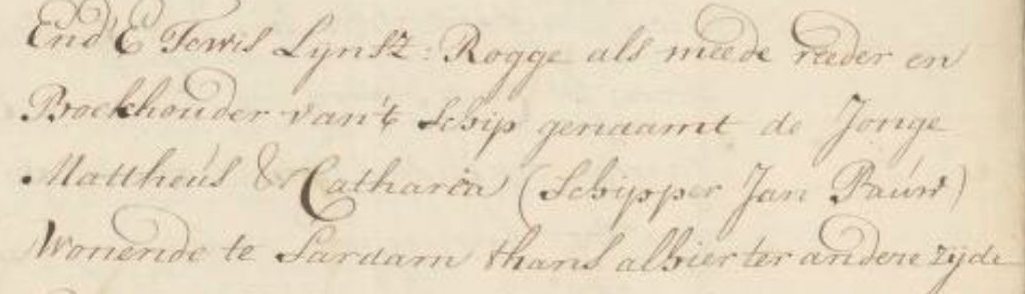 End' E Tewis Lynsz: Rogge als meede reeder en
Boekhouder van't Schip genaamt de Jonge
Mattheus & Catharia (Schipper Jan Pauw)
Wonende te Sardam thans alhier ter andere zyde